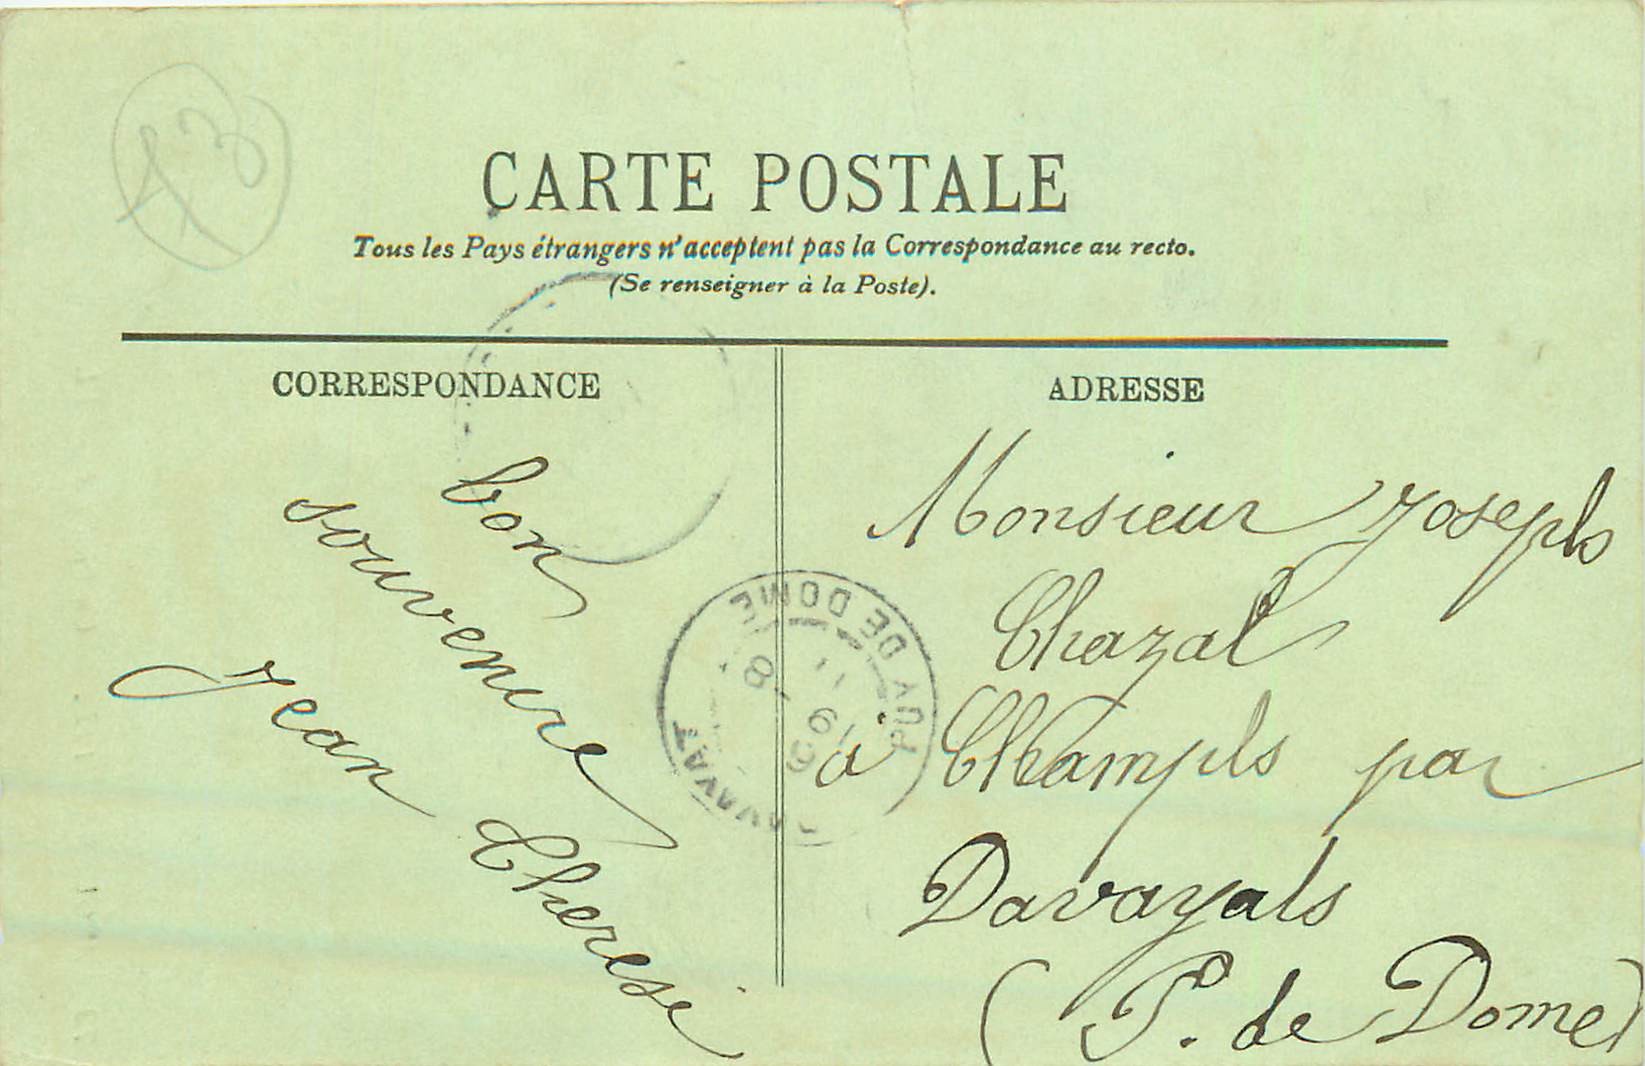 CARTE POSTALE
Tous les Pays étrangers n'acceptent pas la Correspondance au recto.
(Se renseigner à la Poste).
CORRESPONDANCE
bon
souvenire
Jean Cherese
ADRESSE
Monsieur Joseph
Chazal
a Champs par
Davayals
(P. de Dome)
PUY DE DOME
8